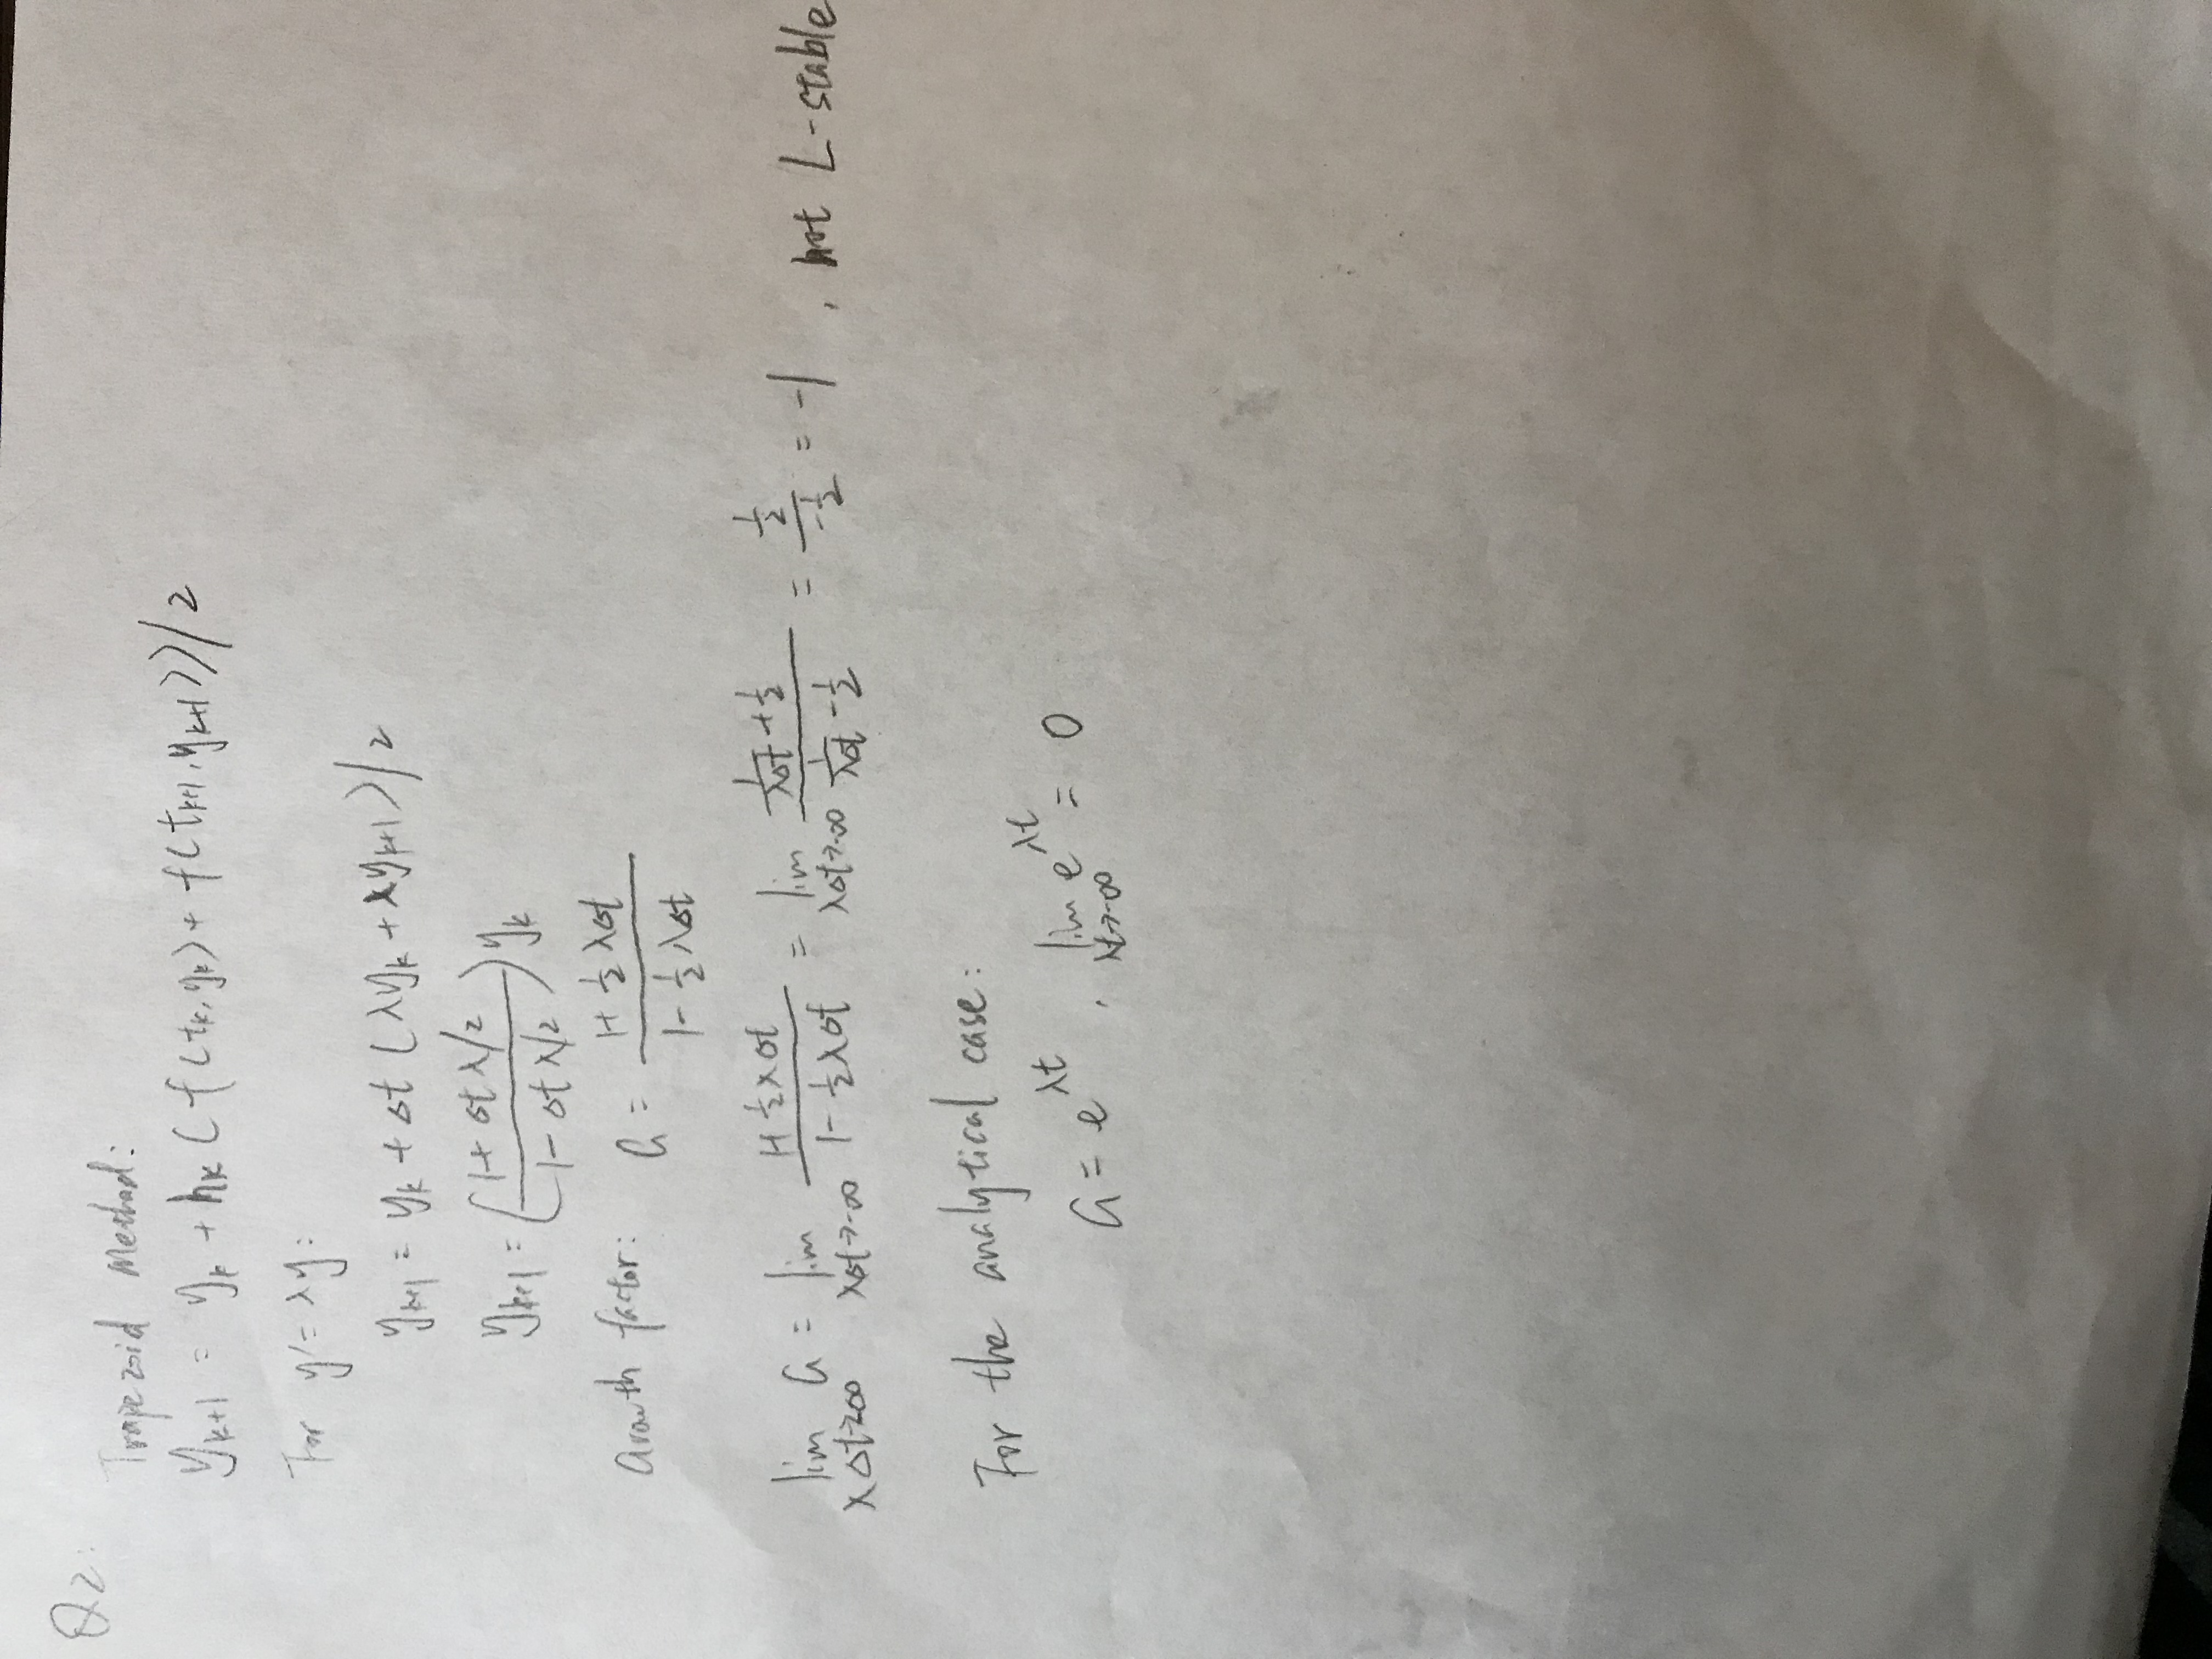 Q2:
Trapezoid Method:
y_{k+1} = y_k + h_k (f(t_k, y_k) + f(t_{k+1}, y_{k+1}))/2
For y' = λy:
y_{k+1} = y_k + Δt (λy_k + λy_{k+1})/2
y_{k+1} = ((1 + Δtλ/2)/(1 - Δtλ/2)) y_k
Growth factor: G = (1 + ½λΔt)/(1 - ½λΔt)
lim_{λΔt→∞} G = lim_{λΔt→-∞} (1 + ½λΔt)/(1 - ½λΔt) = lim_{λΔt→-∞} (1/(λΔt) + ½)/(1/(λΔt) - ½) = ½/(-½) = -1, not L-stable
For the analytical case:
G = e^{λt}, lim_{λt→-∞} e^{λt} = 0